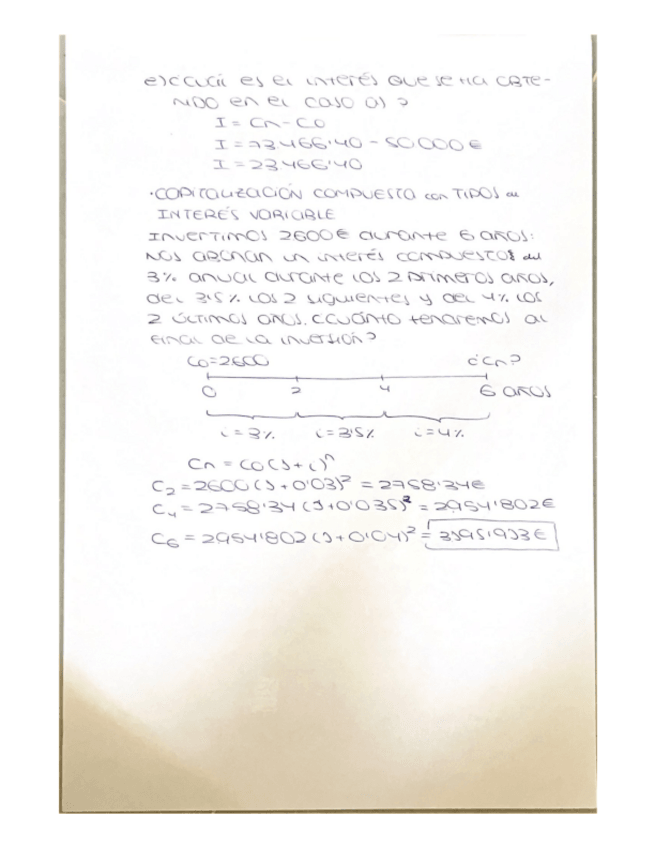 e) ¿Cuál es el interés que se ha obte-
nido en el caso a)?
I = Cn - Co
I = 73466'40 - 50000€
I = 23466'40
·CAPITALIZACIÓN COMPUESTA con TIPOS de
INTERÉS VARIABLE
Invertimos 2600€ durante 6 años:
nos abonan un interés compuestos del
3% anual durante los 2 primeros años,
del 3'5% los 2 siguientes y del 4% los
2 últimos años. ¿Cuánto tendremos al
final de la inversión?
Co=2600 ¿Cn?
0 2 4 6 años
i=3% i=3'5% i=4%
Cn = Co(1+i)^n
C2 = 2600(1+0'03)² = 2758'34€
C4 = 2758'34(1+0'035)² = 2954'802€
C6 = 2954'802(1+0'04)² = 3195'913€